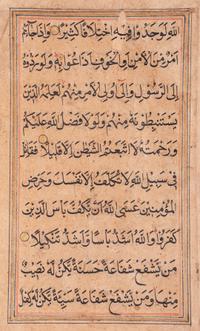 اللهِ لَوَجَدُوا فِيهِ اخْتِلَافًا كَثِيرًا وَإِذَا جَاءَهُمْ
أَمْرٌ مِنَ الْأَمْنِ أَوِ الْخَوْفِ أَذَاعُوا بِهِ وَلَوْ رَدُّوهُ
إِلَى الرَّسُولِ وَإِلَى أُولِي الْأَمْرِ مِنْهُمْ لَعَلِمَهُ الَّذِينَ
يَسْتَنْبِطُونَهُ مِنْهُمْ وَلَوْلَا فَضْلُ اللهِ عَلَيْكُمْ
وَرَحْمَتُهُ لَاتَّبَعْتُمُ الشَّيْطَنَ إِلَّا قَلِيلًا فَقَاتِلْ
فِي سَبِيلِ اللهِ لَا تُكَلَّفُ إِلَّا نَفْسَكَ وَحَرِّضِ
الْمُؤْمِنِينَ عَسَى اللهُ أَنْ يَكُفَّ بَأْسَ الَّذِينَ
كَفَرُوا وَاللهُ أَشَدُّ بَأْسًا وَأَشَدُّ تَنْكِيلًا
مَنْ يَشْفَعْ شَفَاعَةً حَسَنَةً يَكُنْ لَهُ نَصِيبٌ
مِنْهَا وَمَنْ يَشْفَعْ شَفَاعَةً سَيِّئَةً يَكُنْ لَهُ كِفْلٌ